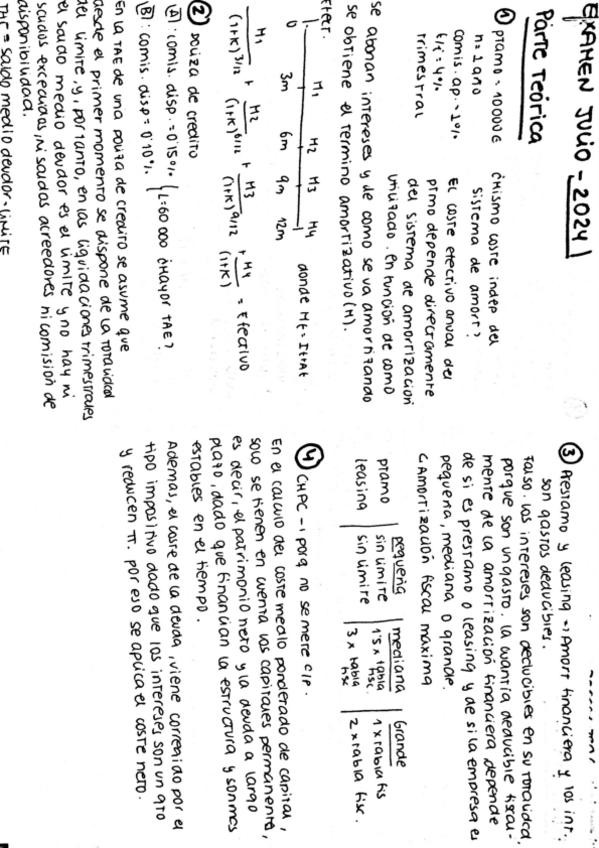 EXAMEN JULIO - 2024
Parte teórica
① ptamo = 10000€
n = 1 año
comis. ap. = 1%
tic = 4%
trimestral
¿Mismo coste indep del
sistema de amort?
El coste efectivo anual del
ptmo depende directamente
del sistema de amortización
utilizado. En función de como
se abonan intereses y de como se va amortizando
se obtiene el término amortizativo (M).
M1 M2 M3 M4
0 3m 6m 9m 12m
Efect.
donde Mt = It + At
M1/(1+K)^3/12 + M2/(1+K)^6/12 + M3/(1+K)^9/12 + M4/(1+K) = Efectivo
② Póliza de crédito
A: comis. disp. = 0'15%
B: comis. disp = 0'10%
L = 60 000 ¿Mayor TAE?
En la TAE de una póliza de crédito se asume que
desde el primer momento se dispone de la totalidad
del límite, y, por tanto, en las liquidaciones trimestrales
el saldo medio deudor es el límite y no hay ni
saldos excedidos, ni saldos acreedores ni comisión de
disponibilidad.
= saldo medio deudor = LÍMITE
③ Préstamo y leasing → Amort financiera y los int.
son gastos deducibles.
Falso. Los intereses son deducibles en su totalidad
porque son un gasto. La cuantía deducible fiscal-
mente de la amortización financiera depende
de si es préstamo o leasing y de si la empresa es
pequeña, mediana o grande.
Amortización fiscal máxima
pequeña | mediana | Grande
ptamo | sin límite | 1'5 x tabla fisc. | 1 x tabla fis
leasing | sin límite | 3 x tabla fisc | 2 x tabla fisc.
④ CMPC → porq no se mete c/p.
En el cálculo del coste medio ponderado de capital,
solo se tienen en cuenta los capitales permanente,
es decir, el patrimonio neto y la deuda a largo
plazo, dado que financian la estructura y son mas
estables en el tiempo.
Además, el coste de la deuda, viene corregido por el
tipo impositivo dado que los intereses son un gto
y reducen π. por eso se aplica el coste neto.